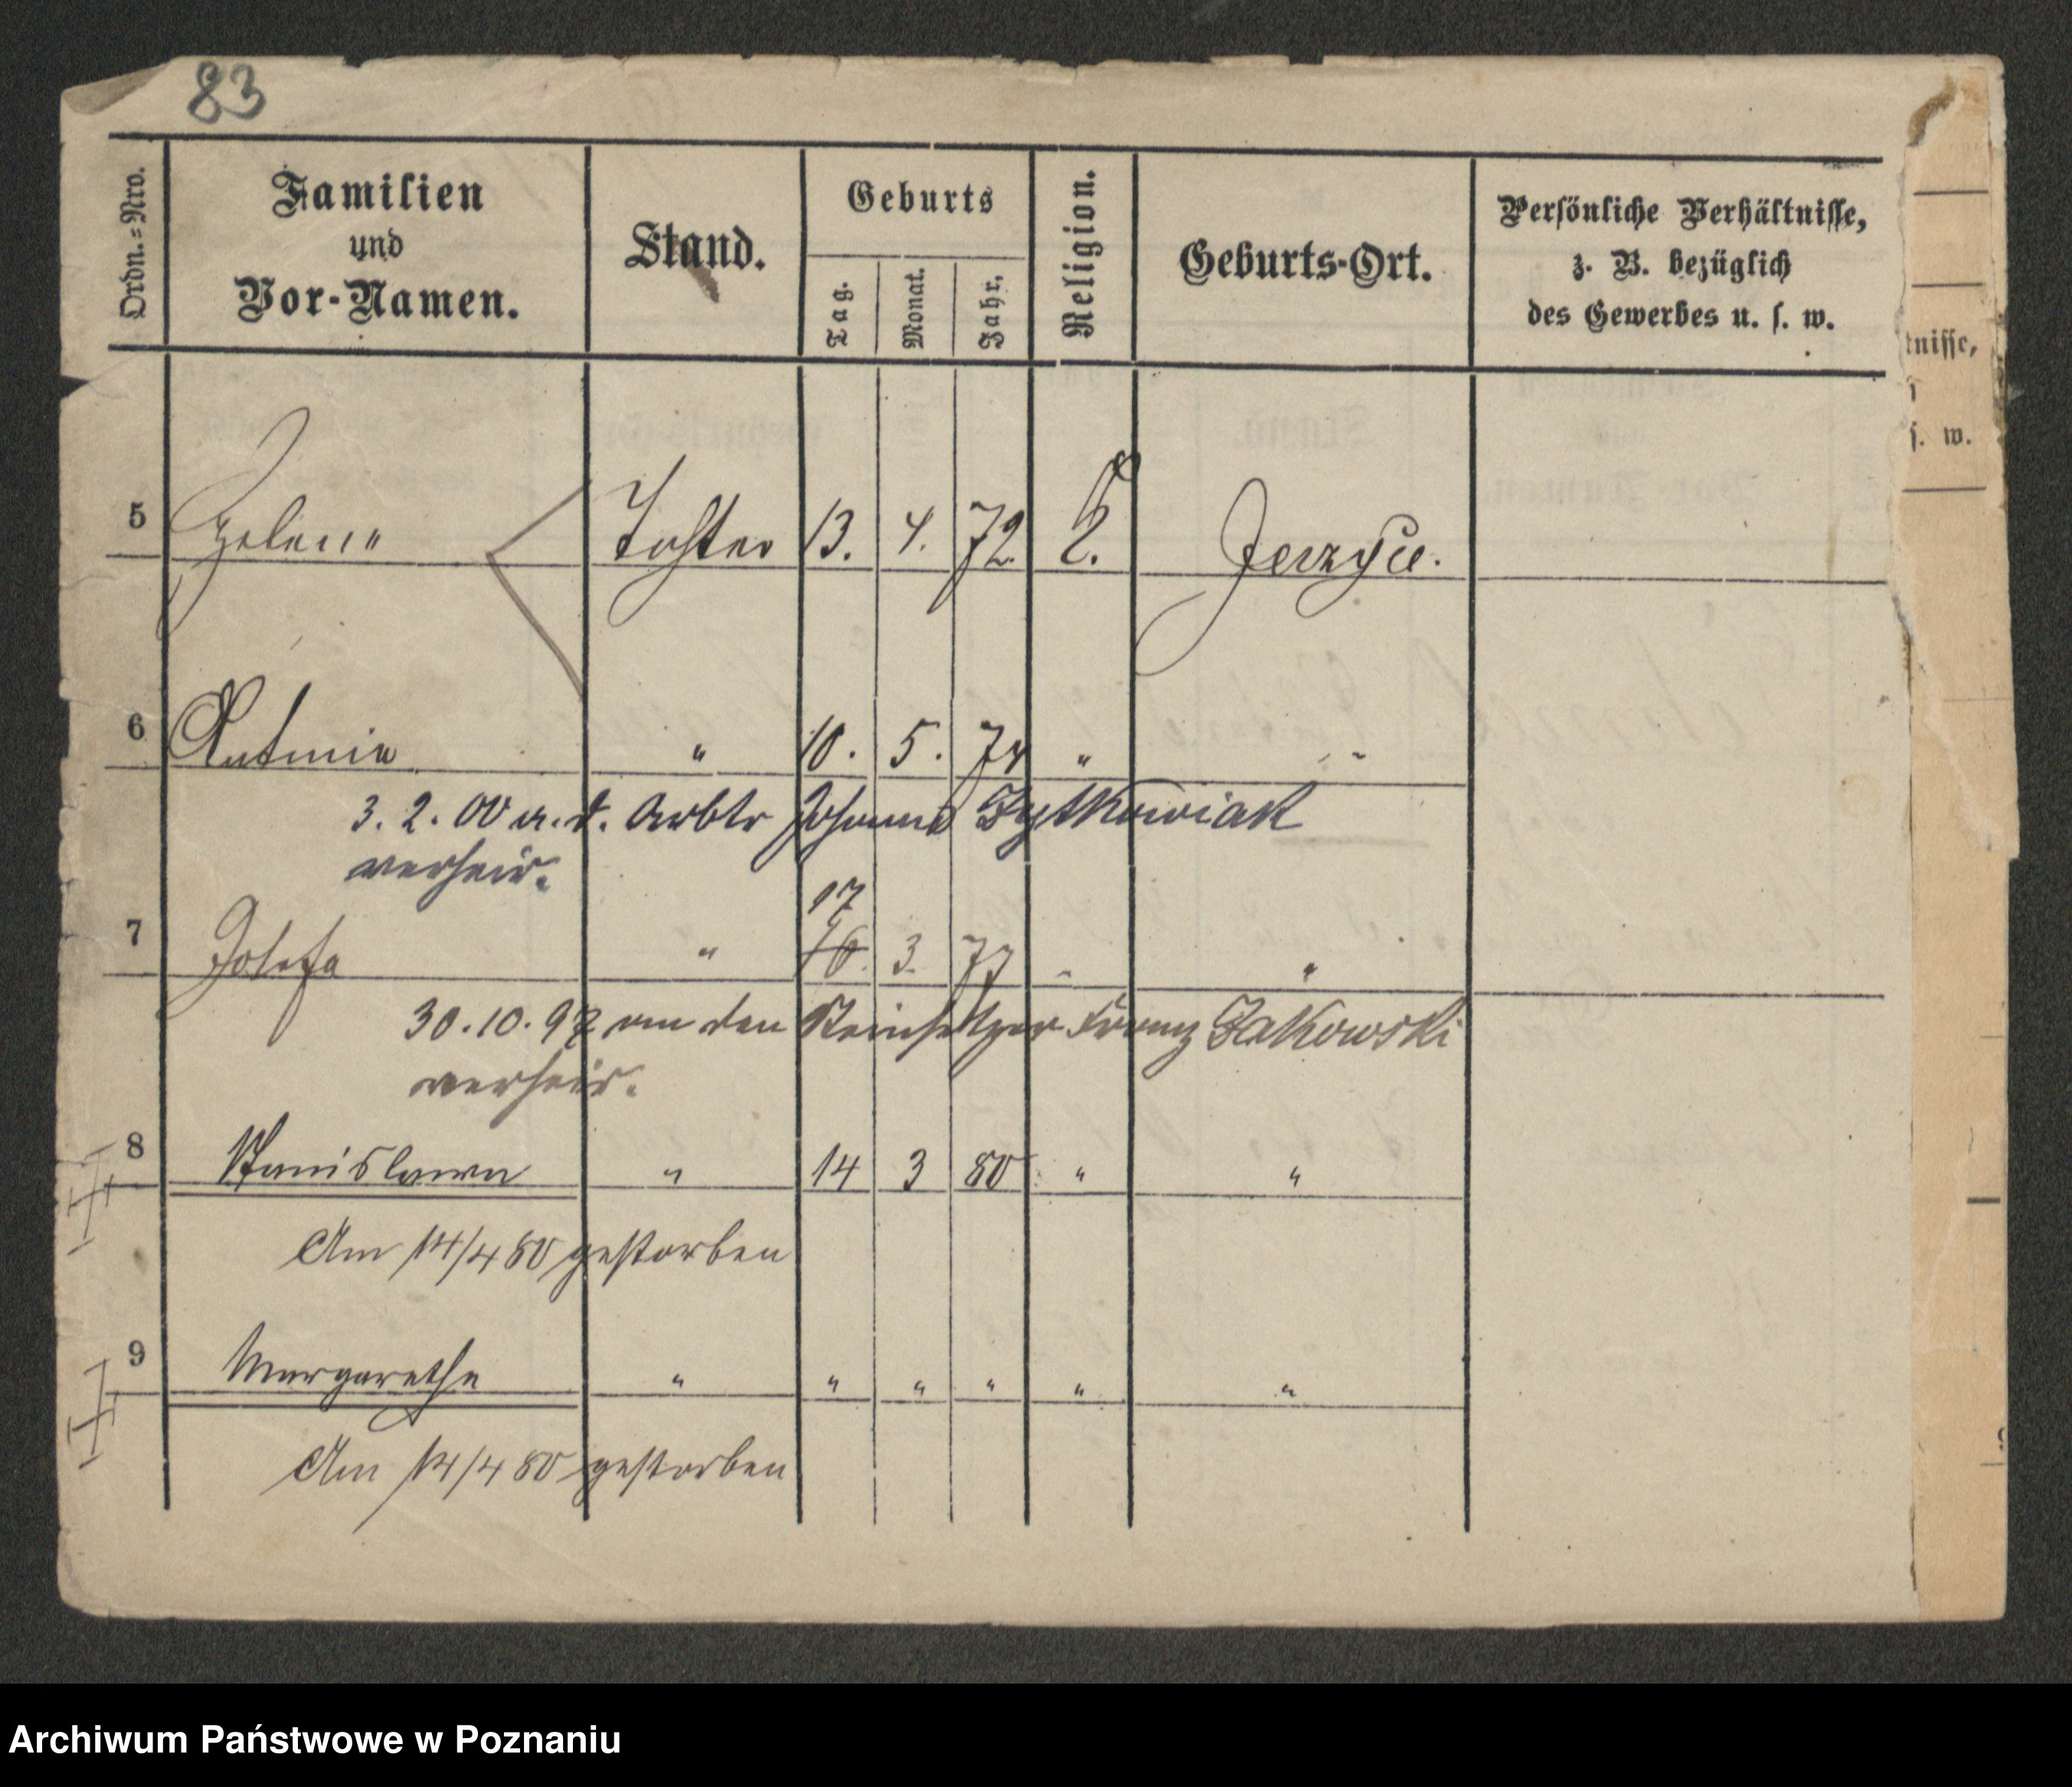 83
Ordn.-Nro.
Familien
und
Vor-Namen.
Stand.
Geburts
Tag.
Monat.
Jahr.
Religion.
Geburts-Ort.
Persönliche Verhältnisse,
z. B. bezüglich
des Gewerbes u. s. w.
tnisse,
s. w.
5 Helena Tochter 13. 4. 72 Jerzyce.
6 Antonia " 10. 5. 74 " "
3. 2. 00 a. d. Arbtr Johann Zytkowiak
verheir.
17
7 Josefa " 16. 3. 77 "
30. 10. 97 an den Steinsetzer Franz Zakowski
verheir.
8 Stanislawa " 14 3 80 " "
Am 14/4 80 gestorben
9 Margarethe " " " " " "
Am 14/4 80 gestorben
Archiwum Państwowe w Poznaniu